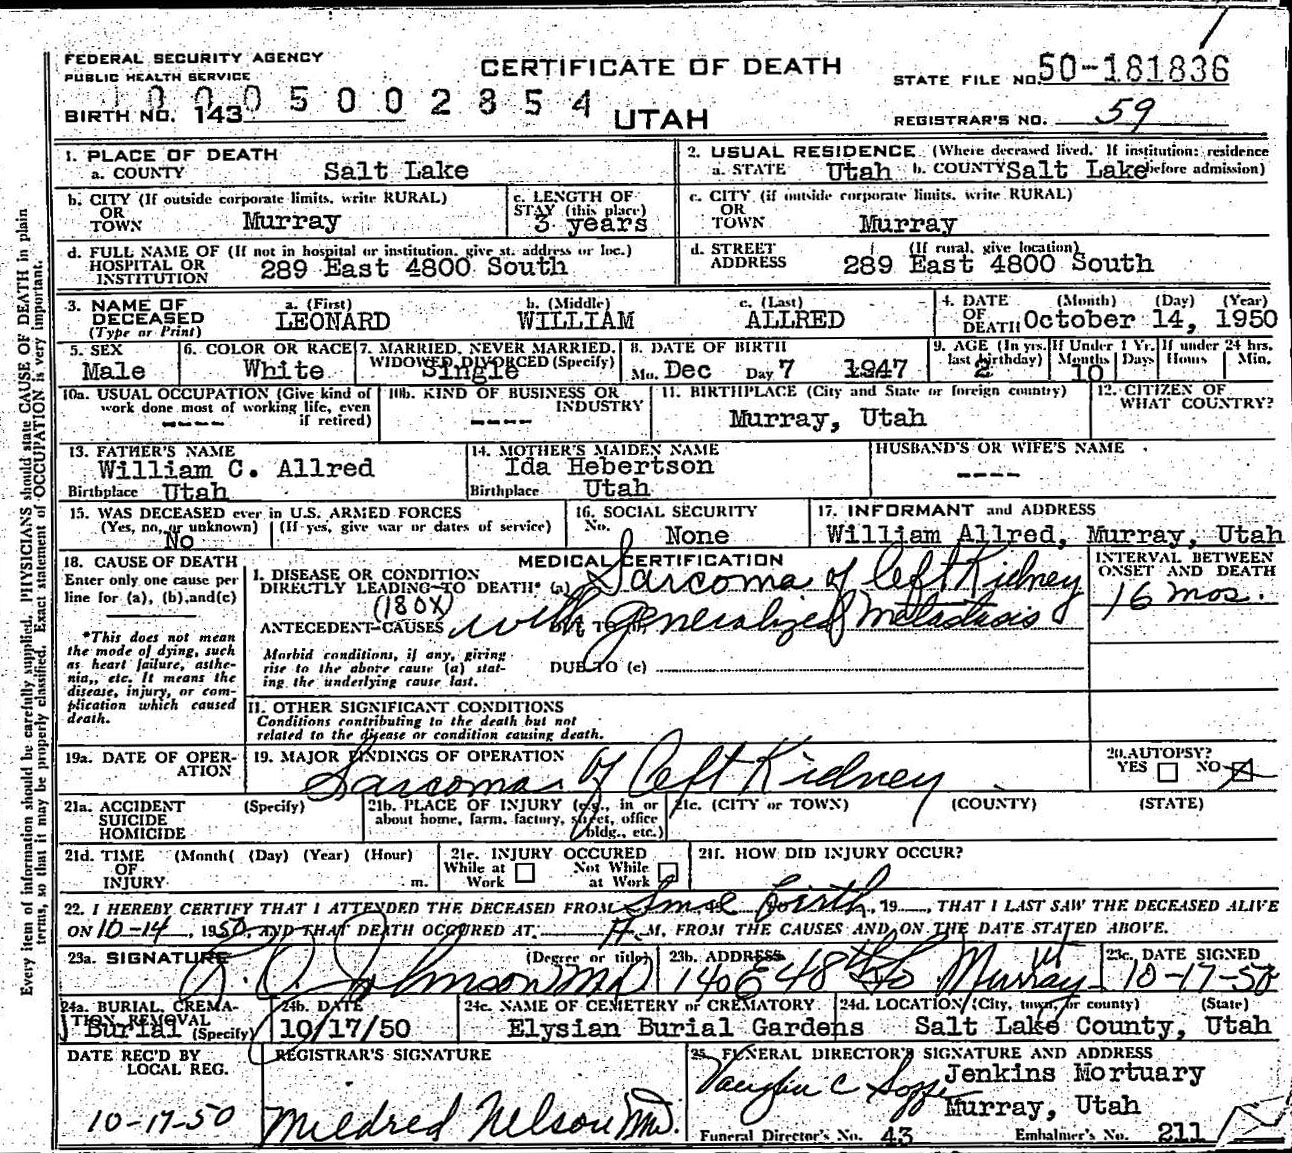 FEDERAL SECURITY AGENCY
PUBLIC HEALTH SERVICE
CERTIFICATE OF DEATH
STATE FILE NO. 50-181836
10005002854
BIRTH NO. 143
UTAH
REGISTRAR'S NO. 59
1. PLACE OF DEATH
a. COUNTY Salt Lake
2. USUAL RESIDENCE (Where deceased lived. If institution: residence before admission)
a. STATE Utah b. COUNTY Salt Lake
b. CITY (If outside corporate limits, write RURAL)
OR
TOWN Murray
c. LENGTH OF
STAY (this place)
3 years
c. CITY (if outside corporate limits, write RURAL)
OR
TOWN Murray
d. FULL NAME OF (If not in hospital or institution, give st. address or loc.)
HOSPITAL OR
INSTITUTION 289 East 4800 South
d. STREET (If rural, give location)
ADDRESS 289 East 4800 South
3. NAME OF
DECEASED
(Type or Print)
a. (First) b. (Middle) c. (Last)
LEONARD WILLIAM ALLRED
4. DATE (Month) (Day) (Year)
OF
DEATH October 14, 1950
5. SEX
Male
6. COLOR OR RACE
White
7. MARRIED, NEVER MARRIED,
WIDOWED, DIVORCED (Specify)
Single
8. DATE OF BIRTH
Mo. Dec Day 7 1947
9. AGE (In yrs. last birthday) 2
If Under 1 Yr. Months Days 10
If under 24 hrs. Hours Min.
10a. USUAL OCCUPATION (Give kind of
work done most of working life, even
if retired)
----
10b. KIND OF BUSINESS OR
INDUSTRY
----
11. BIRTHPLACE (City and State or foreign country)
Murray, Utah
12. CITIZEN OF
WHAT COUNTRY?
13. FATHER'S NAME
William C. Allred
Birthplace Utah
14. MOTHER'S MAIDEN NAME
Ida Hebertson
Birthplace Utah
HUSBAND'S OR WIFE'S NAME
----
15. WAS DECEASED ever in U.S. ARMED FORCES
(Yes, no, or unknown) (If yes, give war or dates of service)
No
16. SOCIAL SECURITY
No. None
17. INFORMANT and ADDRESS
William Allred, Murray, Utah
18. CAUSE OF DEATH
Enter only one cause per
line for (a), (b), and (c)
*This does not mean
the mode of dying, such
as heart failure, asthe-
nia, etc. It means the
disease, injury, or com-
plication which caused
death.
MEDICAL CERTIFICATION
INTERVAL BETWEEN
ONSET AND DEATH
I. DISEASE OR CONDITION
DIRECTLY LEADING TO DEATH* (a) Sarcoma of left Kidney
16 mos.
(180X)
ANTECEDENT CAUSES DUE TO (b) with generalized metastasis
Morbid conditions, if any, giving
rise to the above cause (a) stat-
ing the underlying cause last.
DUE TO (c)
II. OTHER SIGNIFICANT CONDITIONS
Conditions contributing to the death but not
related to the disease or condition causing death.
19a. DATE OF OPER-
ATION
19. MAJOR FINDINGS OF OPERATION
Sarcoma of left Kidney
20. AUTOPSY?
YES NO
21a. ACCIDENT (Specify)
SUICIDE
HOMICIDE
21b. PLACE OF INJURY (e.g., in or
about home, farm, factory, street, office
bldg., etc.)
21c. (CITY or TOWN) (COUNTY) (STATE)
21d. TIME (Month) (Day) (Year) (Hour)
OF
INJURY m.
21e. INJURY OCCURED
While at Work Not While at Work
21f. HOW DID INJURY OCCUR?
22. I HEREBY CERTIFY THAT I ATTENDED THE DECEASED FROM Since birth, 19, THAT I LAST SAW THE DECEASED ALIVE
ON 10-14, 1950, AND THAT DEATH OCCURED AT M, FROM THE CAUSES AND ON THE DATE STATED ABOVE.
23a. SIGNATURE (Degree or title)
Johnson MD
23b. ADDRESS
140 E 48th So Murray Ut
23c. DATE SIGNED
10-17-50
24a. BURIAL, CREMA-
TION REMOVAL
Burial (Specify)
24b. DATE
10/17/50
24c. NAME OF CEMETERY or CREMATORY
Elysian Burial Gardens
24d. LOCATION (City, town, or county) (State)
Salt Lake County, Utah
DATE REC'D BY
LOCAL REG.
10-17-50
REGISTRAR'S SIGNATURE
Mildred Nelson Md.
25. FUNERAL DIRECTOR'S SIGNATURE AND ADDRESS
Jenkins Mortuary
Murray, Utah
Funeral Director's No. 43 Embalmer's No. 211
Every item of information should be carefully supplied. PHYSICIANS should state CAUSE OF DEATH in plain
terms, so that it may be properly classified. Exact statement of OCCUPATION is very important.